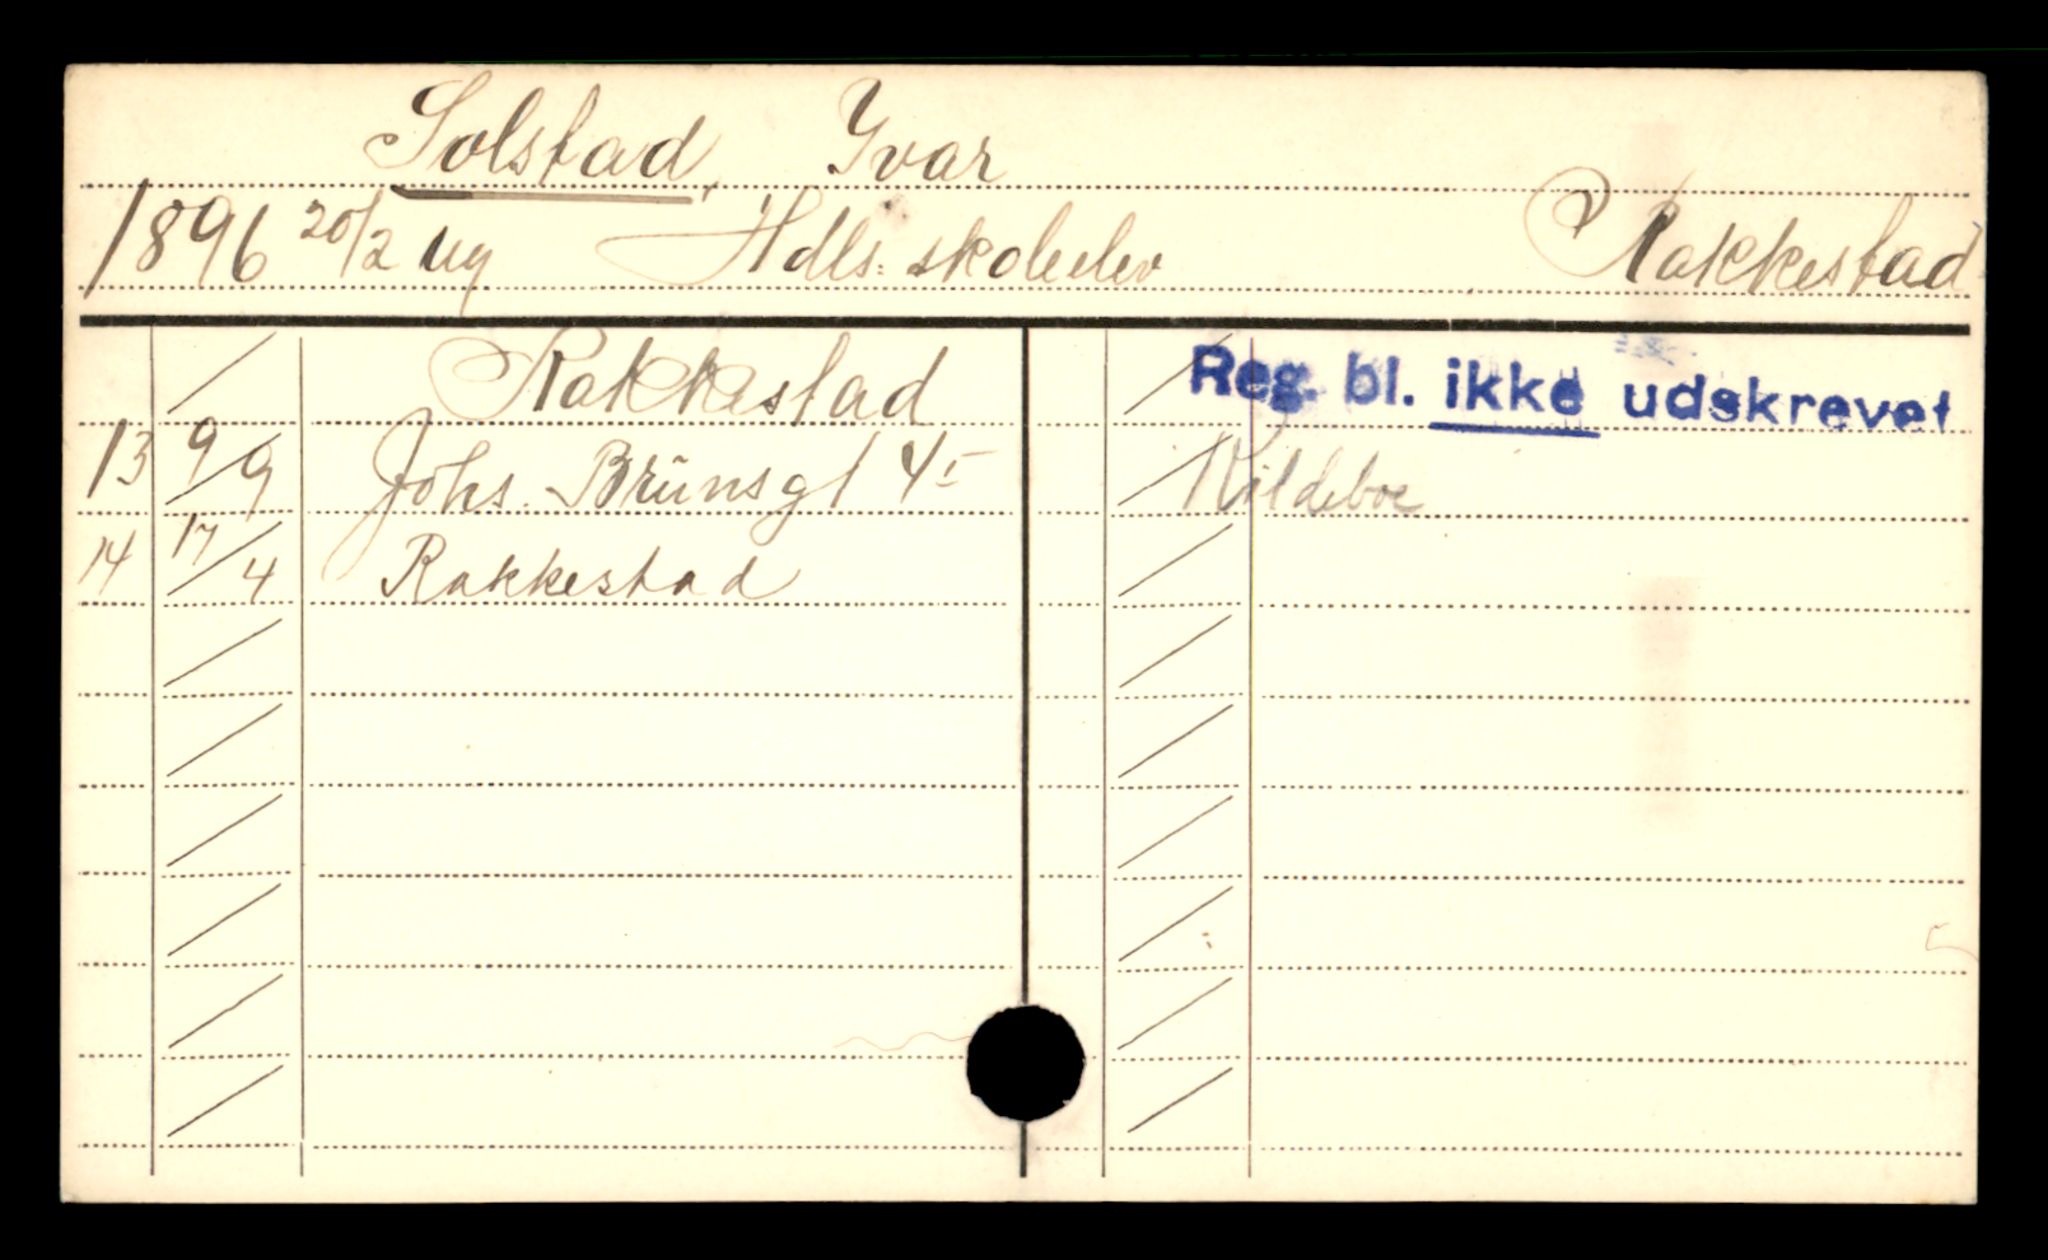 Solstad, Yvar
1896 20/2 ug Hdls: skoleelev Rakkestad
Rakkestad
13 9/9 Johs. Brünsgt 4
14 17/4 Rakkestad
Reg. bl. ikke udskrevet
Kildeboe